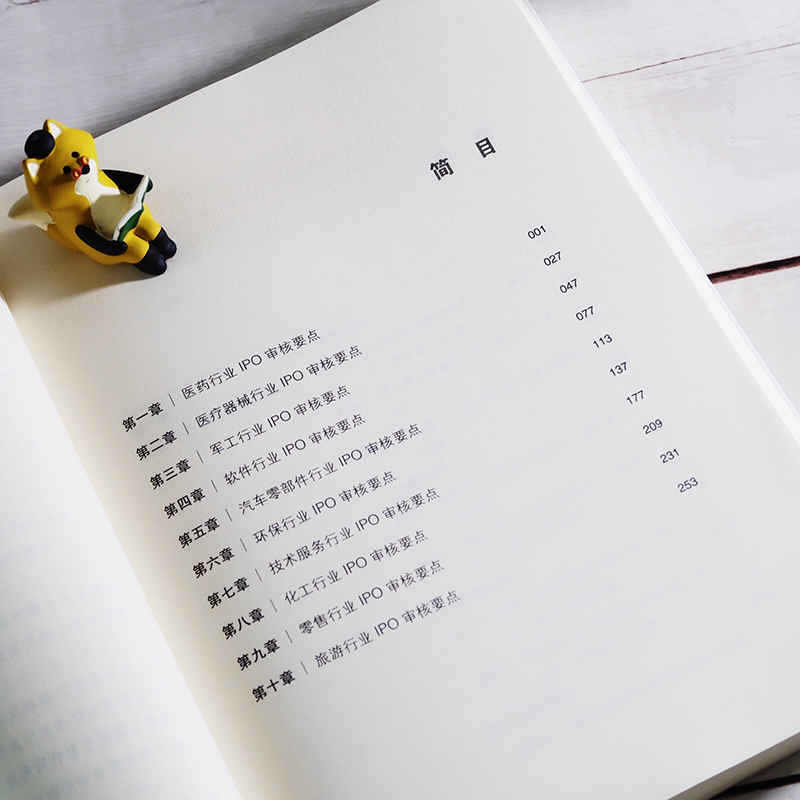 简 目
第一章 | 医药行业 IPO 审核要点 001
第二章 | 医疗器械行业 IPO 审核要点 027
第三章 | 军工行业 IPO 审核要点 047
第四章 | 软件行业 IPO 审核要点 077
第五章 | 汽车零部件行业 IPO 审核要点 113
第六章 | 环保行业 IPO 审核要点 137
第七章 | 技术服务行业 IPO 审核要点 177
第八章 | 化工行业 IPO 审核要点 209
第九章 | 零售行业 IPO 审核要点 231
第十章 | 旅游行业 IPO 审核要点 253